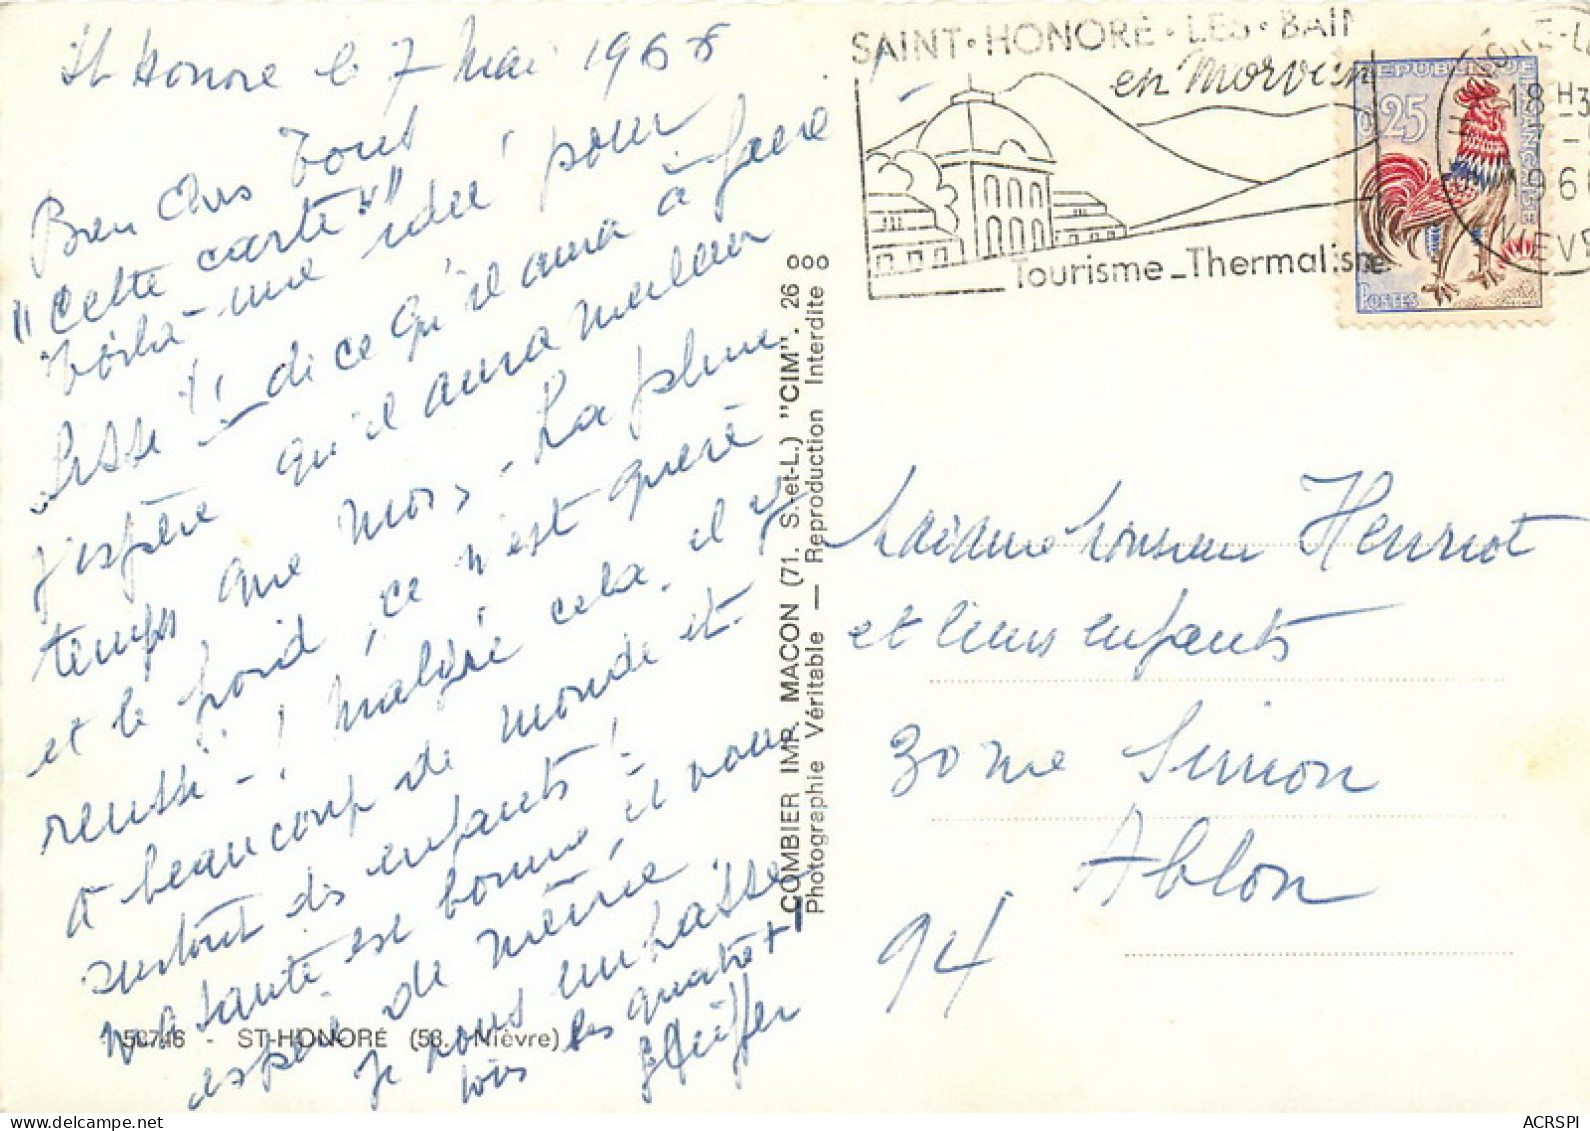 St Honoré le 7 Mai 1966
Bien Chers Tous
"Cette carte!"
Voilà une idée pour
di ce qu'il aura à faire
J'espère qu'il aura meilleur
temps que moi, - La pluie
et le froid, ce n'est guère
réussi - ! Malgré cela, il y
a beaucoup de monde et
surtout des enfants!
Ma santé est bonne et vous
espère de même
Je vous embrasse
tous les quatre
SAINT•HONORÉ•LES•BAIN
en Morvan
Tourisme_Thermalisme
REPUBLIQUE FRANÇAISE
0,25
POSTES
18 H3
196
NIEVRE
COMBIER IMP. MACON (71. S.-et-L.) "CIM". 26
Photographie Véritable — Reproduction Interdite
Madame Monsieur Henriot
et leurs enfants
30 rue Simon
Ablon
94
ST-HONORÉ (58. Nièvre)
ACRSPI